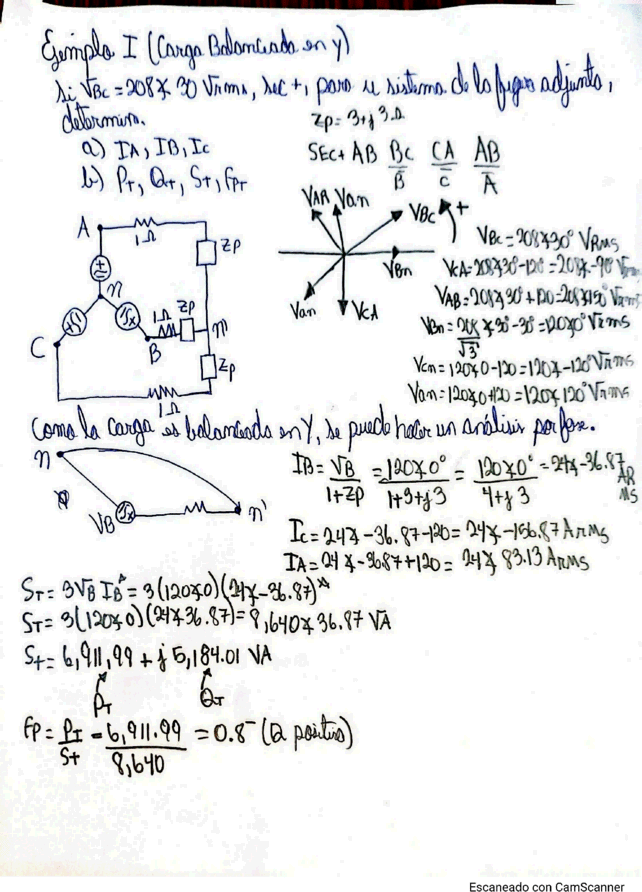 Ejemplo I (Carga Balanceada en Y)
Si VBC = 208∠30 Vrms, sec +, para el sistema de la figura adjunta,
determine.
Zp = 3+j3 Ω
a) IA, IB, IC
b) PT, QT, ST, FPT
SEC+ AB BC CA AB
B C A
VAB Van
VBC +
VBn
Van
VCA
A
1Ω
Zp
n
1Ω
Zp
n'
C
B
Zp
1Ω
VBC = 208∠30° VRMS
VCA = 208∠30-120 = 208∠-90 Vrms
VAB = 208∠30+120 = 208∠150 Vrms
VBn = 208/√3 ∠30-30 = 120∠0° Vrms
Vcn = 120∠0-120 = 120∠-120° Vrms
Van = 120∠0+120 = 120∠120° Vrms
Como la carga es balanceada en Y, se puede hacer un análisis por fase.
n
VB
n'
IB = VB/1+Zp = 120∠0°/1+3+j3 = 120∠0°/4+j3 = 24∠-36.87 ARMS
IC = 24∠-36.87-120 = 24∠-156.87 Arms
IA = 24∠-36.87+120 = 24∠83.13 Arms
ST = 3VB IB* = 3(120∠0)(24∠-36.87)*
ST = 3(120∠0)(24∠36.87) = 8,640∠36.87 VA
St = 6,911,99 + j 5,184.01 VA
PT QT
FP = PT/St = 6,911.99/8,640 = 0.8⁻ (Q positivo)
Escaneado con CamScanner